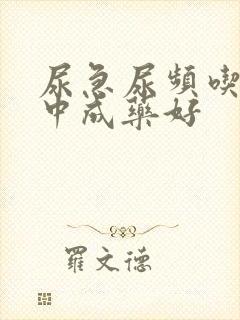 尿急尿頻喫
中成藥好
羅文德